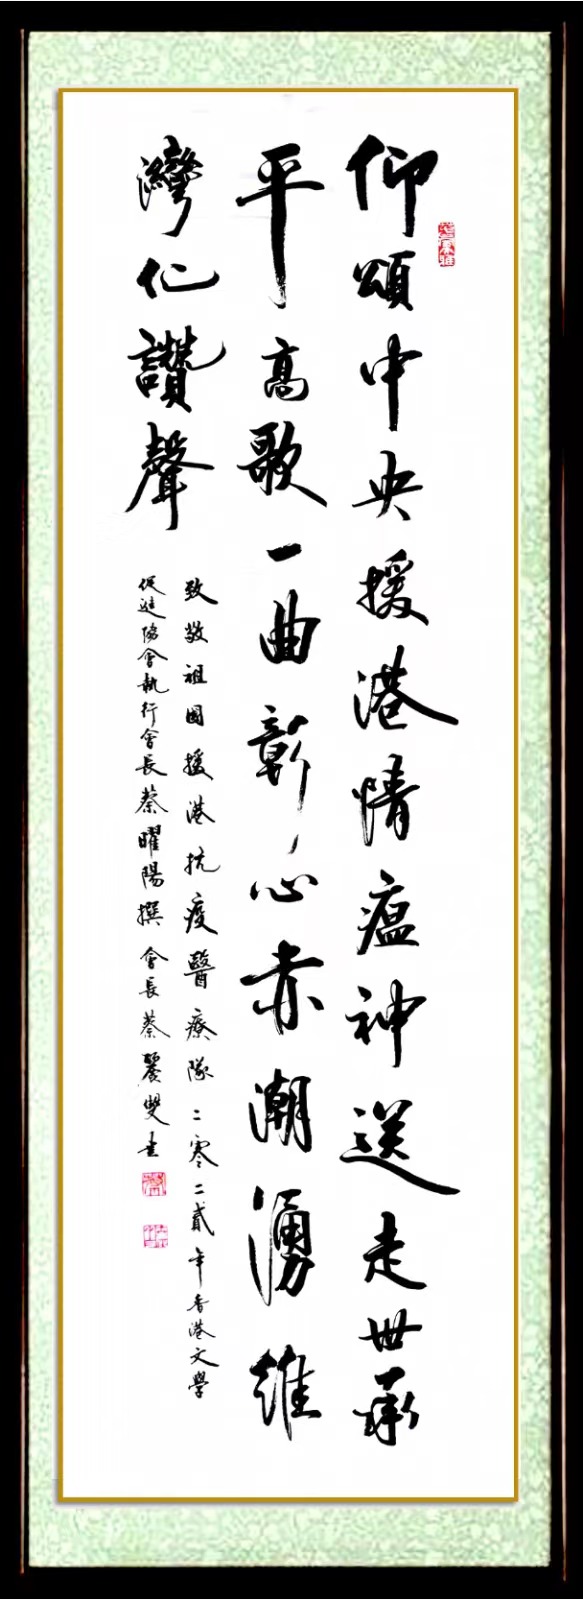 仰頌中央援港情瘟神送走世承
平高歌一曲彰心赤潮湧維
灣化讚聲
致敬祖國援港抗疫醫療隊二零二貳年香港文學
促進協會執行會長蔡曜陽撰 會長蔡麗雙書